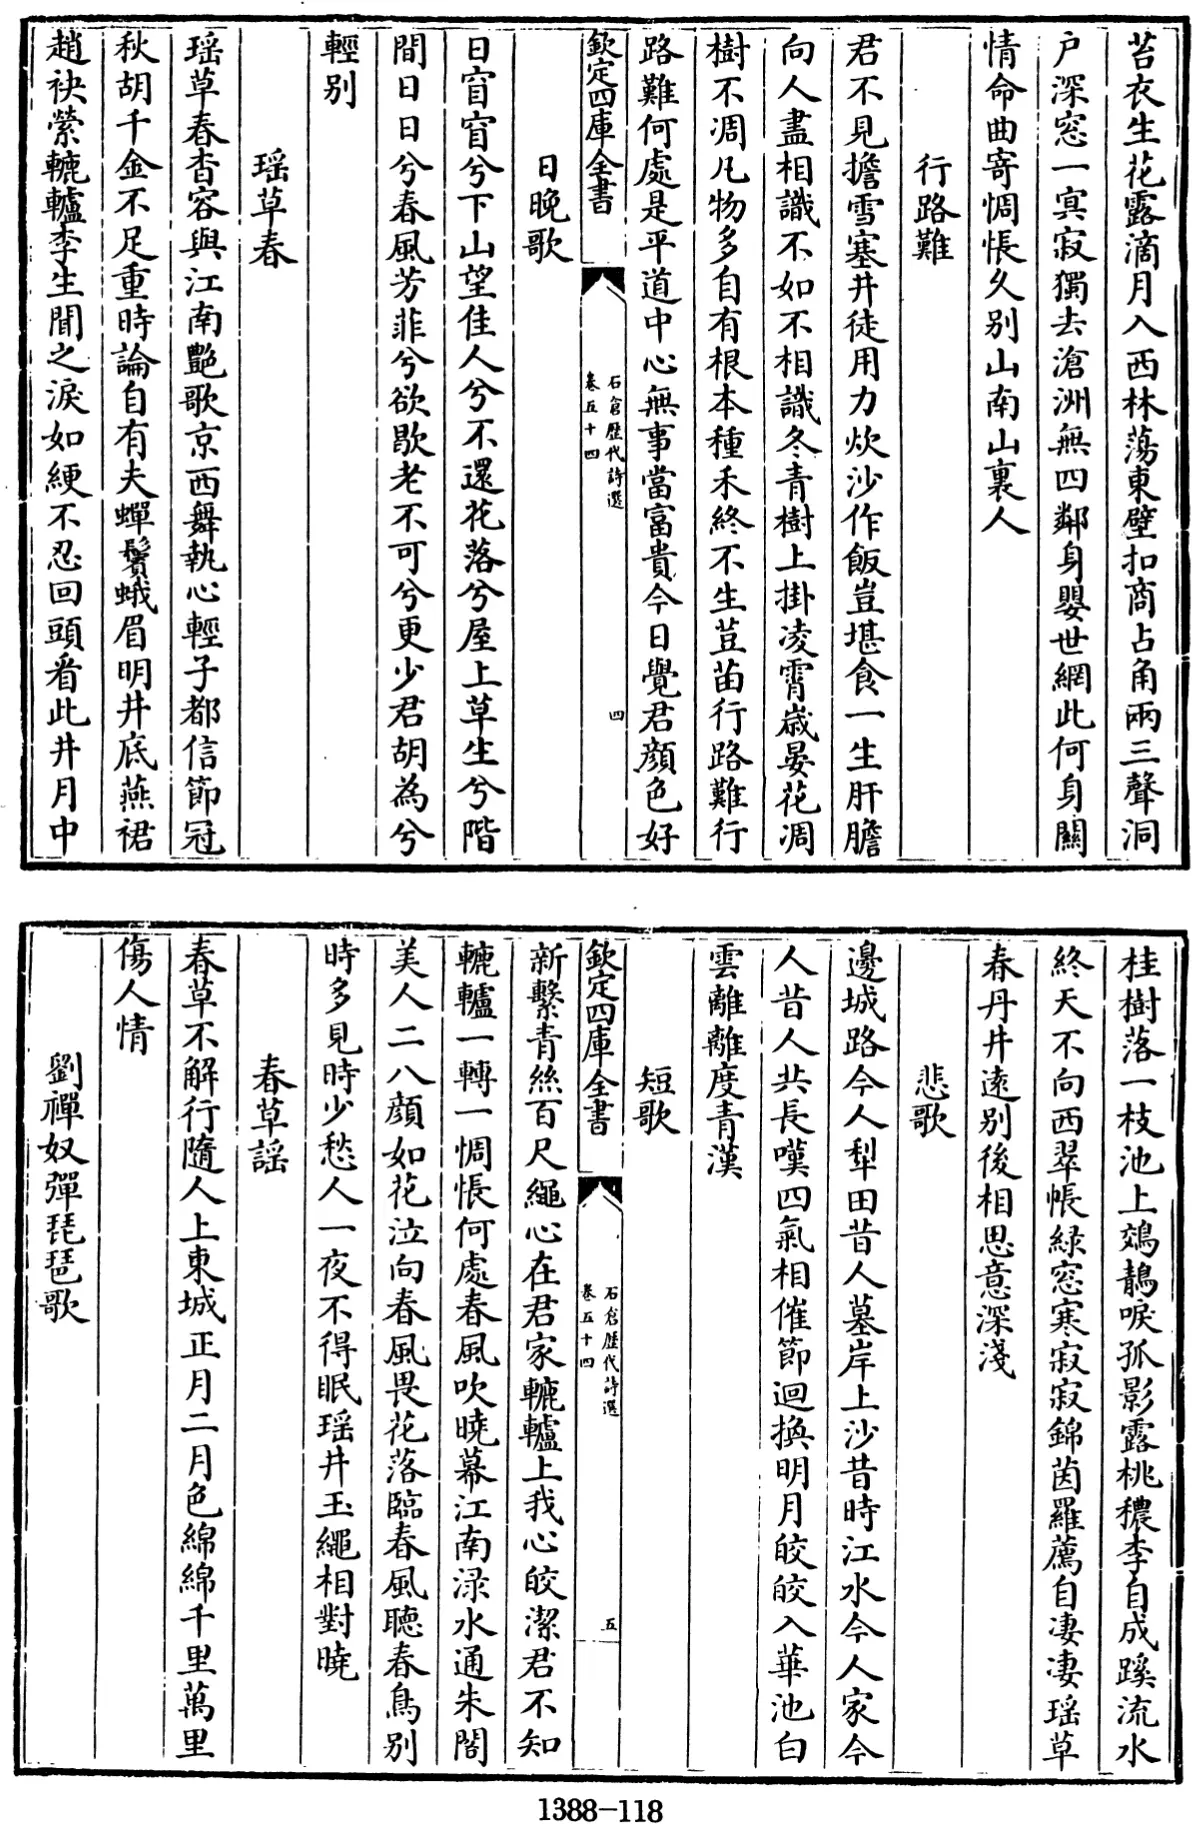 苔衣生花露滴月入西林蕩東壁扣商占角兩三聲洞
户深窓一冥寂獨去滄洲無四鄰身嬰世網此何身關
情命曲寄惆悵久别山南山裏人
行路難
君不見擔雪塞井徒用力炊沙作飯豈堪食一生肝膽
向人盡相識不如不相識冬青樹上掛凌霄歲晏花凋
樹不凋凡物多自有根本種禾終不生荳苗行路難行
路難何處是平道中心無事當富貴今日覺君顔色好
欽定四庫全書
石倉歷代詩選
卷五十四
四
日晚歌
日窅窅兮下山望佳人兮不還花落兮屋上草生兮階
間日日兮春風芳菲兮欲歇老不可兮更少君胡為兮
輕别
瑶草春
瑶草春杳容與江南艶歌京西舞執心輕子都信節冠
秋胡千金不足重時論自有夫蟬鬢蛾眉明井底燕裙
趙袂縈轆轤李生聞之淚如綆不忍回頭看此井月中
桂樹落一枝池上鵁鶄唳孤影露桃穠李自成蹊流水
終天不向西翠帳緑窓寒寂寂錦茵羅薦自凄凄瑶草
春丹井遠别後相思意深淺
悲歌
邊城路今人犁田昔人墓岸上沙昔時江水今人家今
人昔人共長嘆四氣相催節迴換明月皎皎入華池白
雲離離度青漢
短歌
欽定四庫全書
石倉歷代詩選
卷五十四
五
新繫青絲百尺繩心在君家轆轤上我心皎潔君不知
轆轤一轉一惆悵何處春風吹曉幕江南渌水通朱閣
美人二八顔如花泣向春風畏花落臨春風聽春鳥别
時多見時少愁人一夜不得眠瑶井玉繩相對曉
春草謡
春草不解行隨人上東城正月二月色綿綿千里萬里
傷人情
劉禪奴彈琵琶歌
1388-118